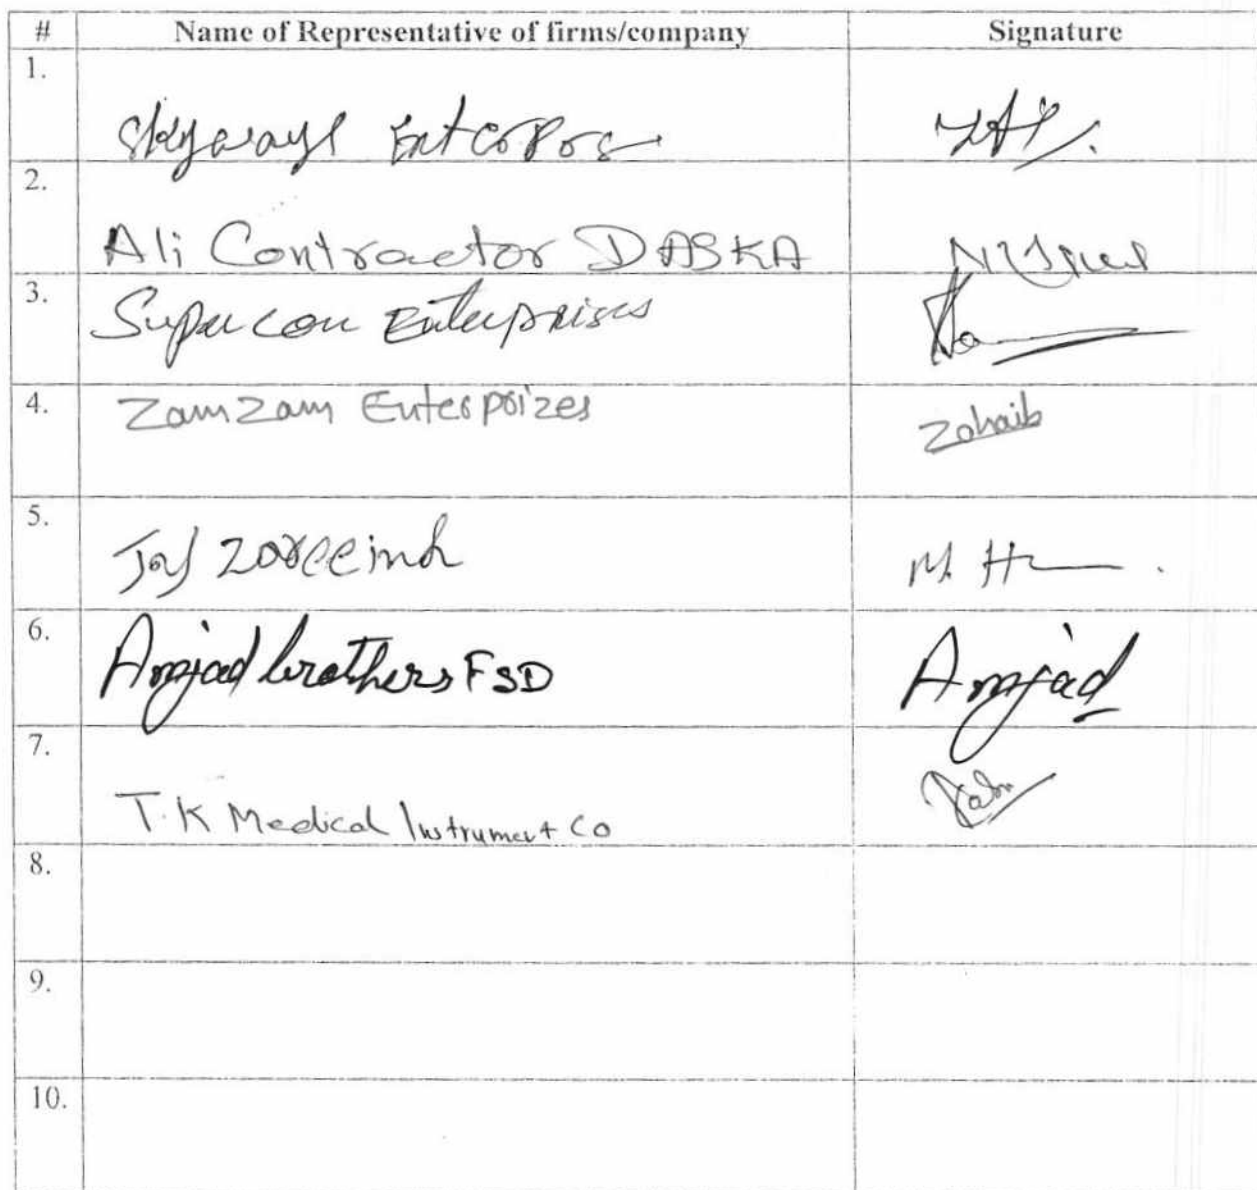 # Name of Representative of firms/company Signature
1.
Skyways
2.
Ali Contractor DASKA
3.
Supercon Enterprises
4.
Zamzam Enterprizes Zohaib
5.
M. H
6.
Amjad brothers FSD Amjad
7.
T.K Medical Instrument Co
8.
9.
10.